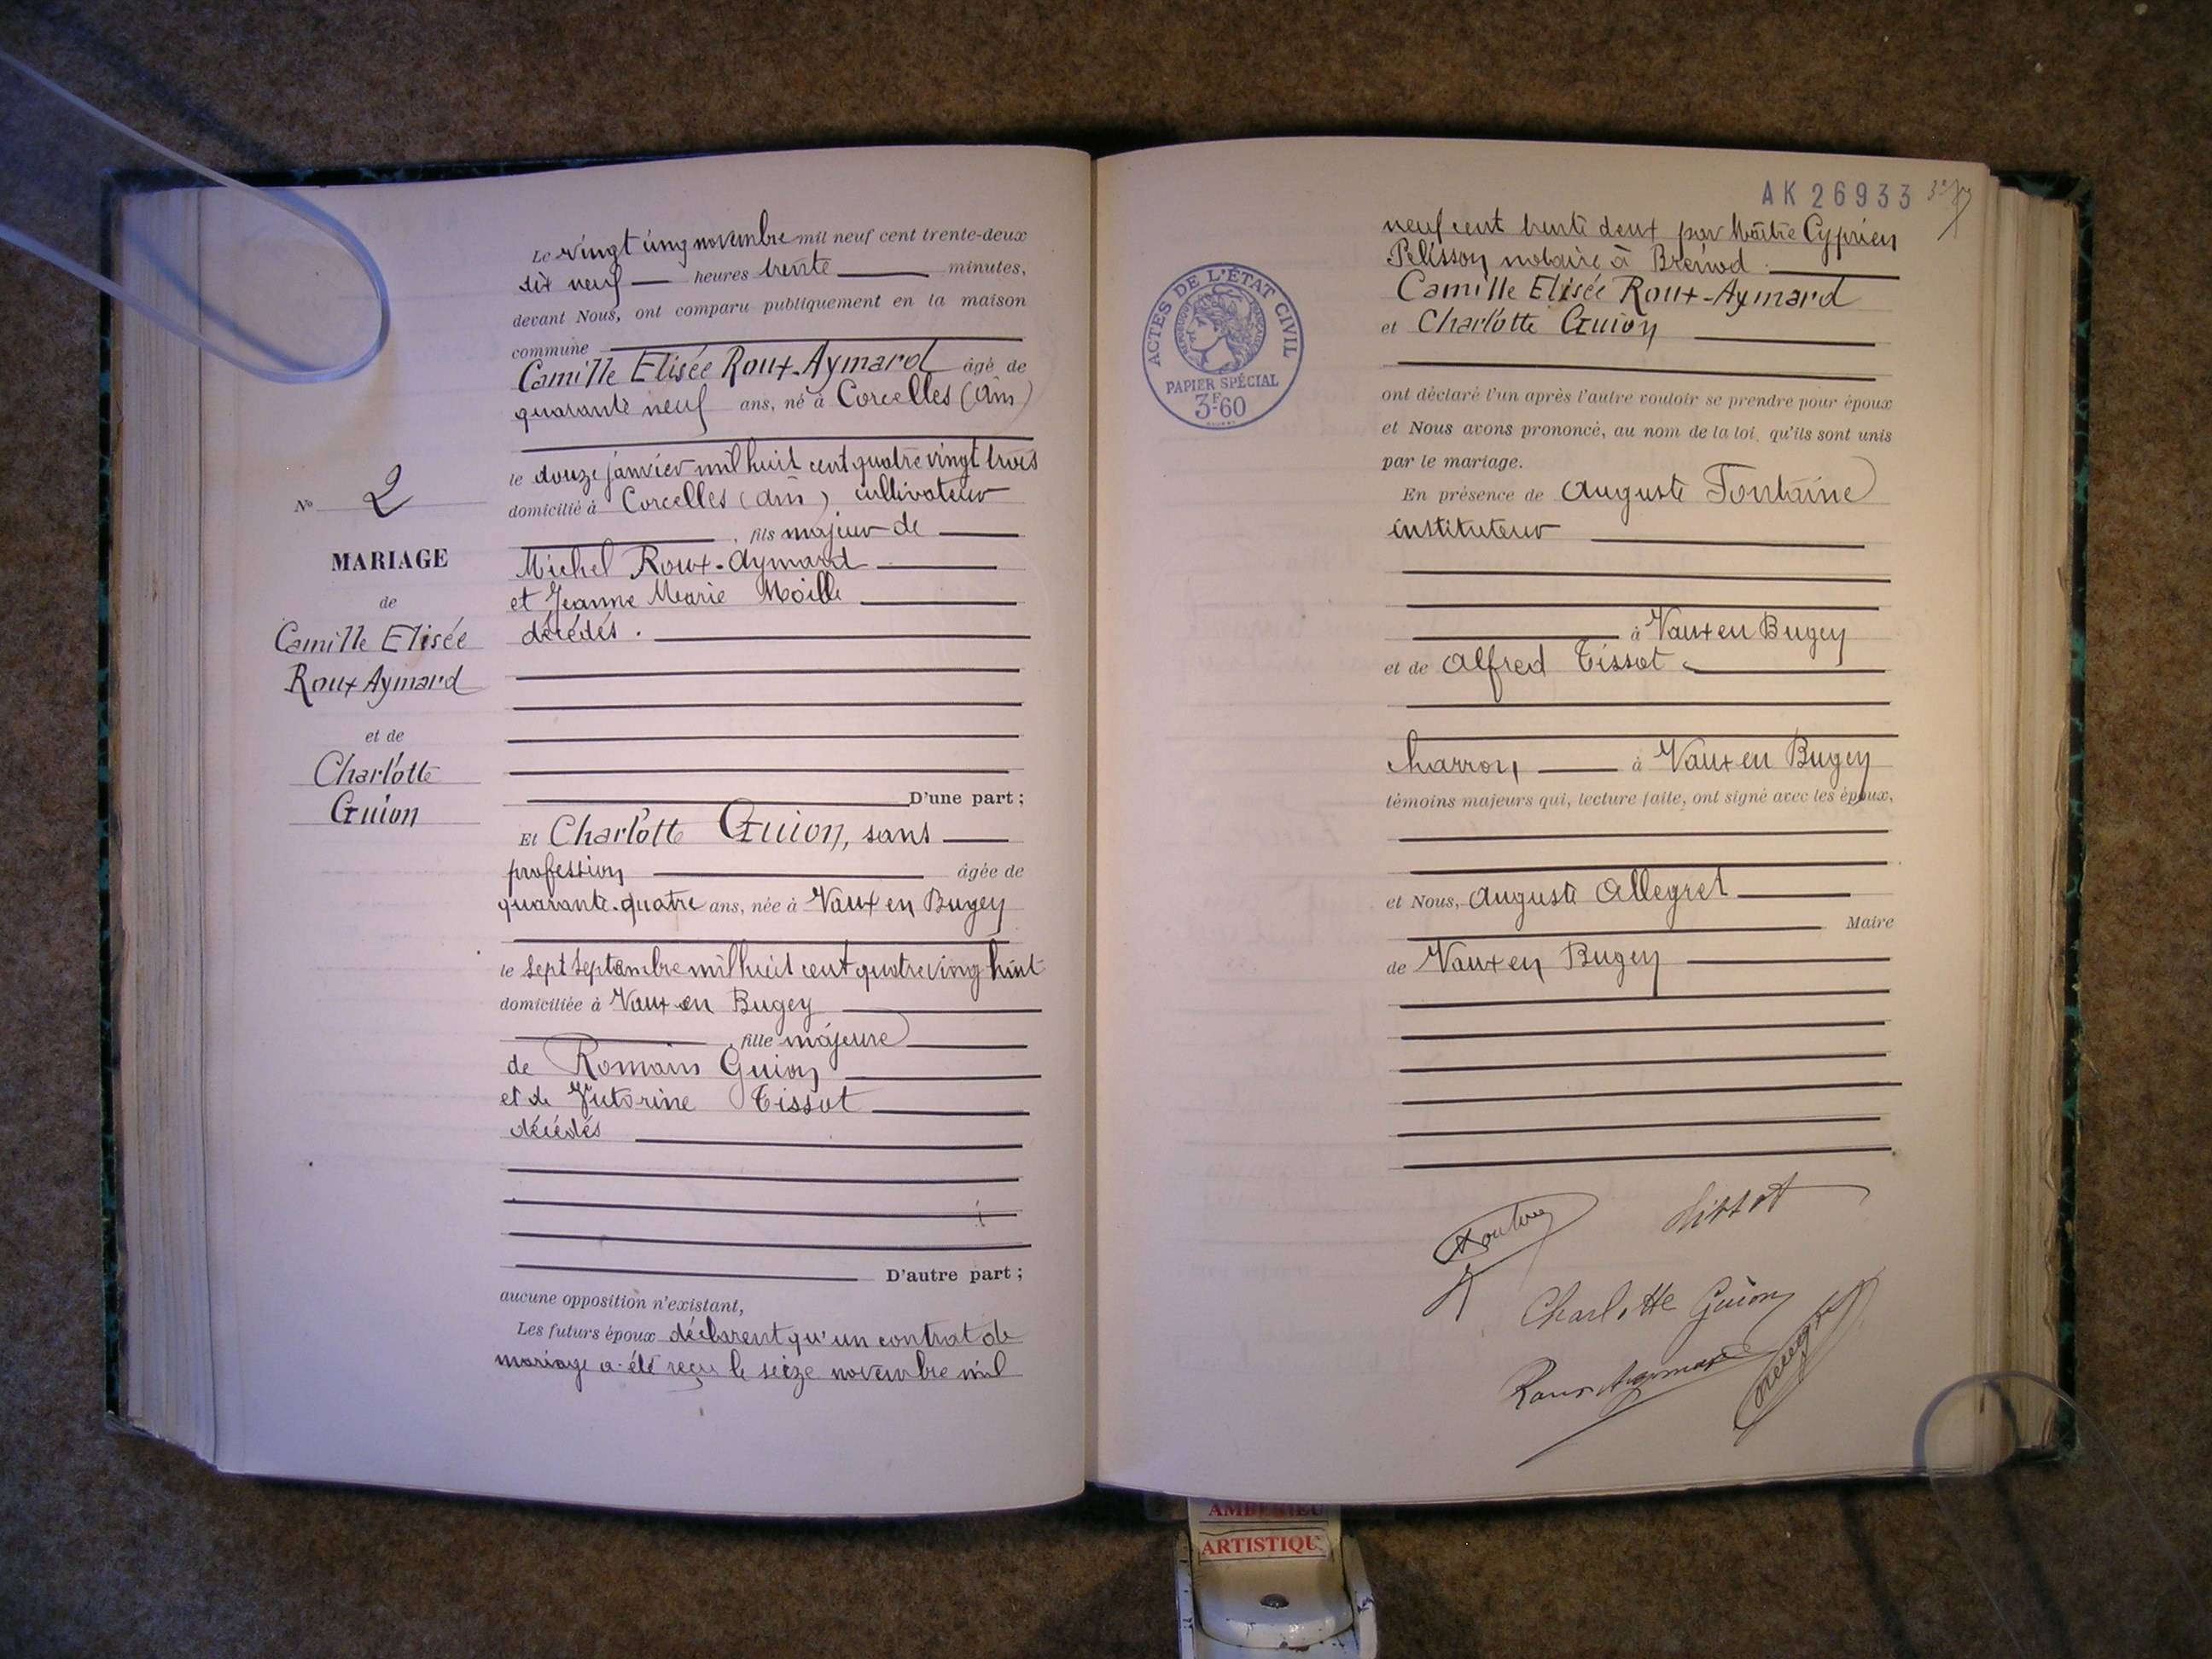 Le vingt cinq novembre mil neuf cent trente-deux
dix neuf heures trente minutes,
devant Nous, ont comparu publiquement en la maison
commune
Camille Elisée Roux-Aymard âgé de
quarante neuf ans, né à Corcelles (Ain)
le douze janvier mil huit cent quatre vingt trois
domicilié à Corcelles (Ain) cultivateur
, fils majeur de
Michel Roux-Aymard
et Jeanne Marie Moille
décédés.
D'une part ;
Et Charlotte Guion, sans
profession âgée de
quarante-quatre ans, née à Vaux en Bugey
le sept septembre mil huit cent quatre ving huit
domiciliée à Vaux en Bugey
, fille majeure
de Romain Guion
et de Tissot
décédés
D'autre part ;
aucune opposition n'existant,
Les futurs époux déclarent qu'un contrat de
mariage a été reçu le seize novembre mil
N° 2
MARIAGE
de
Camille Elisée
Roux Aymard
et de
Charlotte
Guion
AK 26933
ACTES DE L'ÉTAT CIVIL
PAPIER SPÉCIAL
3F60
neuf cent trente deux par Maître Cyprien
Pélisson notaire à Brénod
Camille Elisée Roux-Aymard
et Charlotte Guion
ont déclaré l'un après l'autre vouloir se prendre pour époux
et Nous avons prononcé, au nom de la loi, qu'ils sont unis
par le mariage.
En présence de Auguste Fontaine
instituteur
à Vaux en Bugey
et de Alfred Tissot
charron à Vaux en Bugey
témoins majeurs qui, lecture faite, ont signé avec les époux,
et Nous, Auguste Allegret
Maire
de Vaux en Bugey
Tissot
Charlotte Guion
Roux Aymard
AMBERIEU
ARTISTIQU